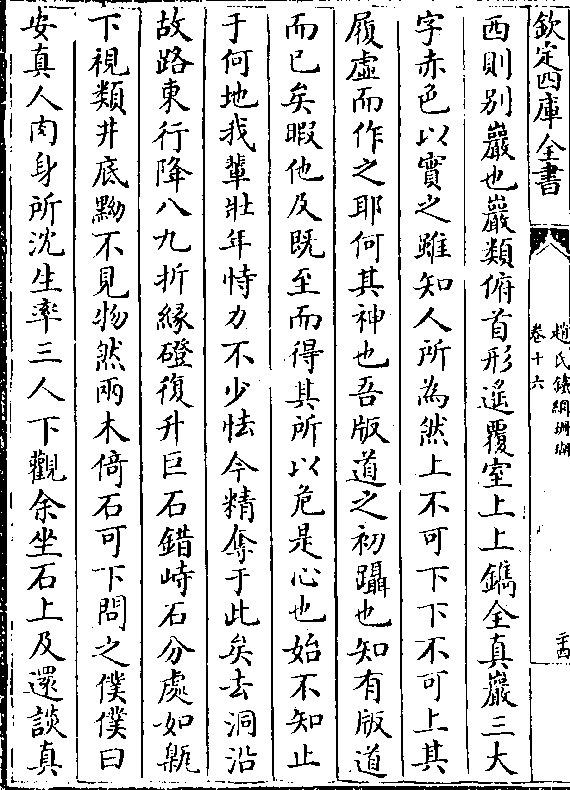 欽定四庫全書
趙氏鐵網珊瑚
卷十六
二十四
西則别巖也巖類俯首形遙覆室上上鐫全真巖三大
字赤色以實之雖知人所為然上不可下下不可上其
履虛而作之耶何其神也吾版道之初躡也知有版道
而已矣暇他及既至而得其所以危是心也始不知止
于何地我輩壯年恃力不少怯今精奪于此矣去洞沿
故路東行降八九折緣磴復升巨石錯峙石分處如甈
下視類井底黝不見物然兩木倚石可下問之僕僕曰
安真人肉身所沈生率三人下觀余坐石上及還談真